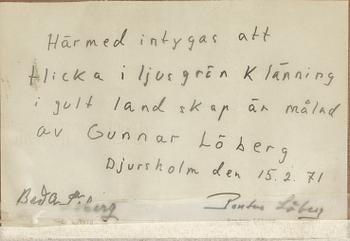 Härmed intygas att
flicka i ljusgrön Klänning
i gult landskap är målad
av Gunnar Löberg
Djursholm den 15.2.71
Löberg